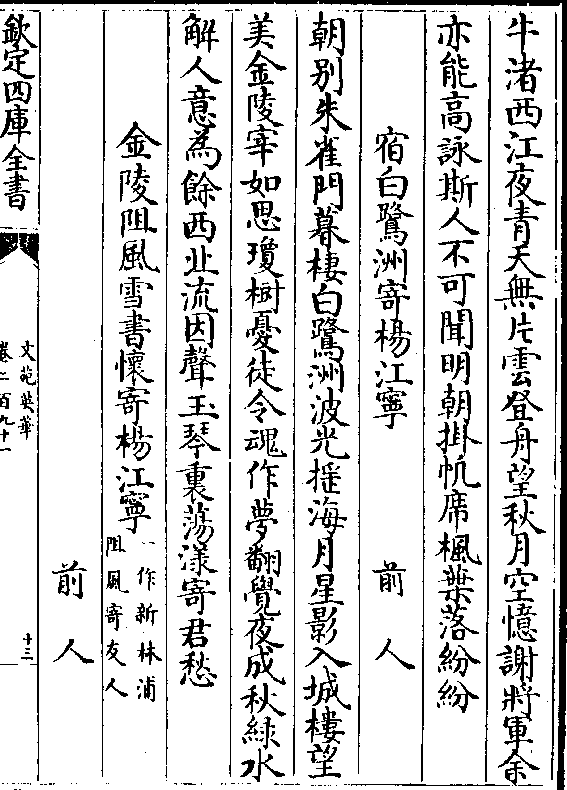 牛渚西江夜青天無片雲登舟望秋月空憶謝將軍余
亦能高詠斯人不可聞明朝掛帆席楓葉落紛紛
宿白鷺洲寄楊江寧　前人
朝别朱雀門暮棲白鷺洲波光揺海月星影入城樓望
美金陵宰如思瓊樹憂徒令魂作夢翻覺夜成秋緑水
解人意為餘西北流因聲玉琴裏蕩漾寄君愁
金陵阻風雪書懷寄楊江寧
一作新林浦
阻風寄友人
前人
欽定四庫全書
文苑英華
卷二百九十一
十三